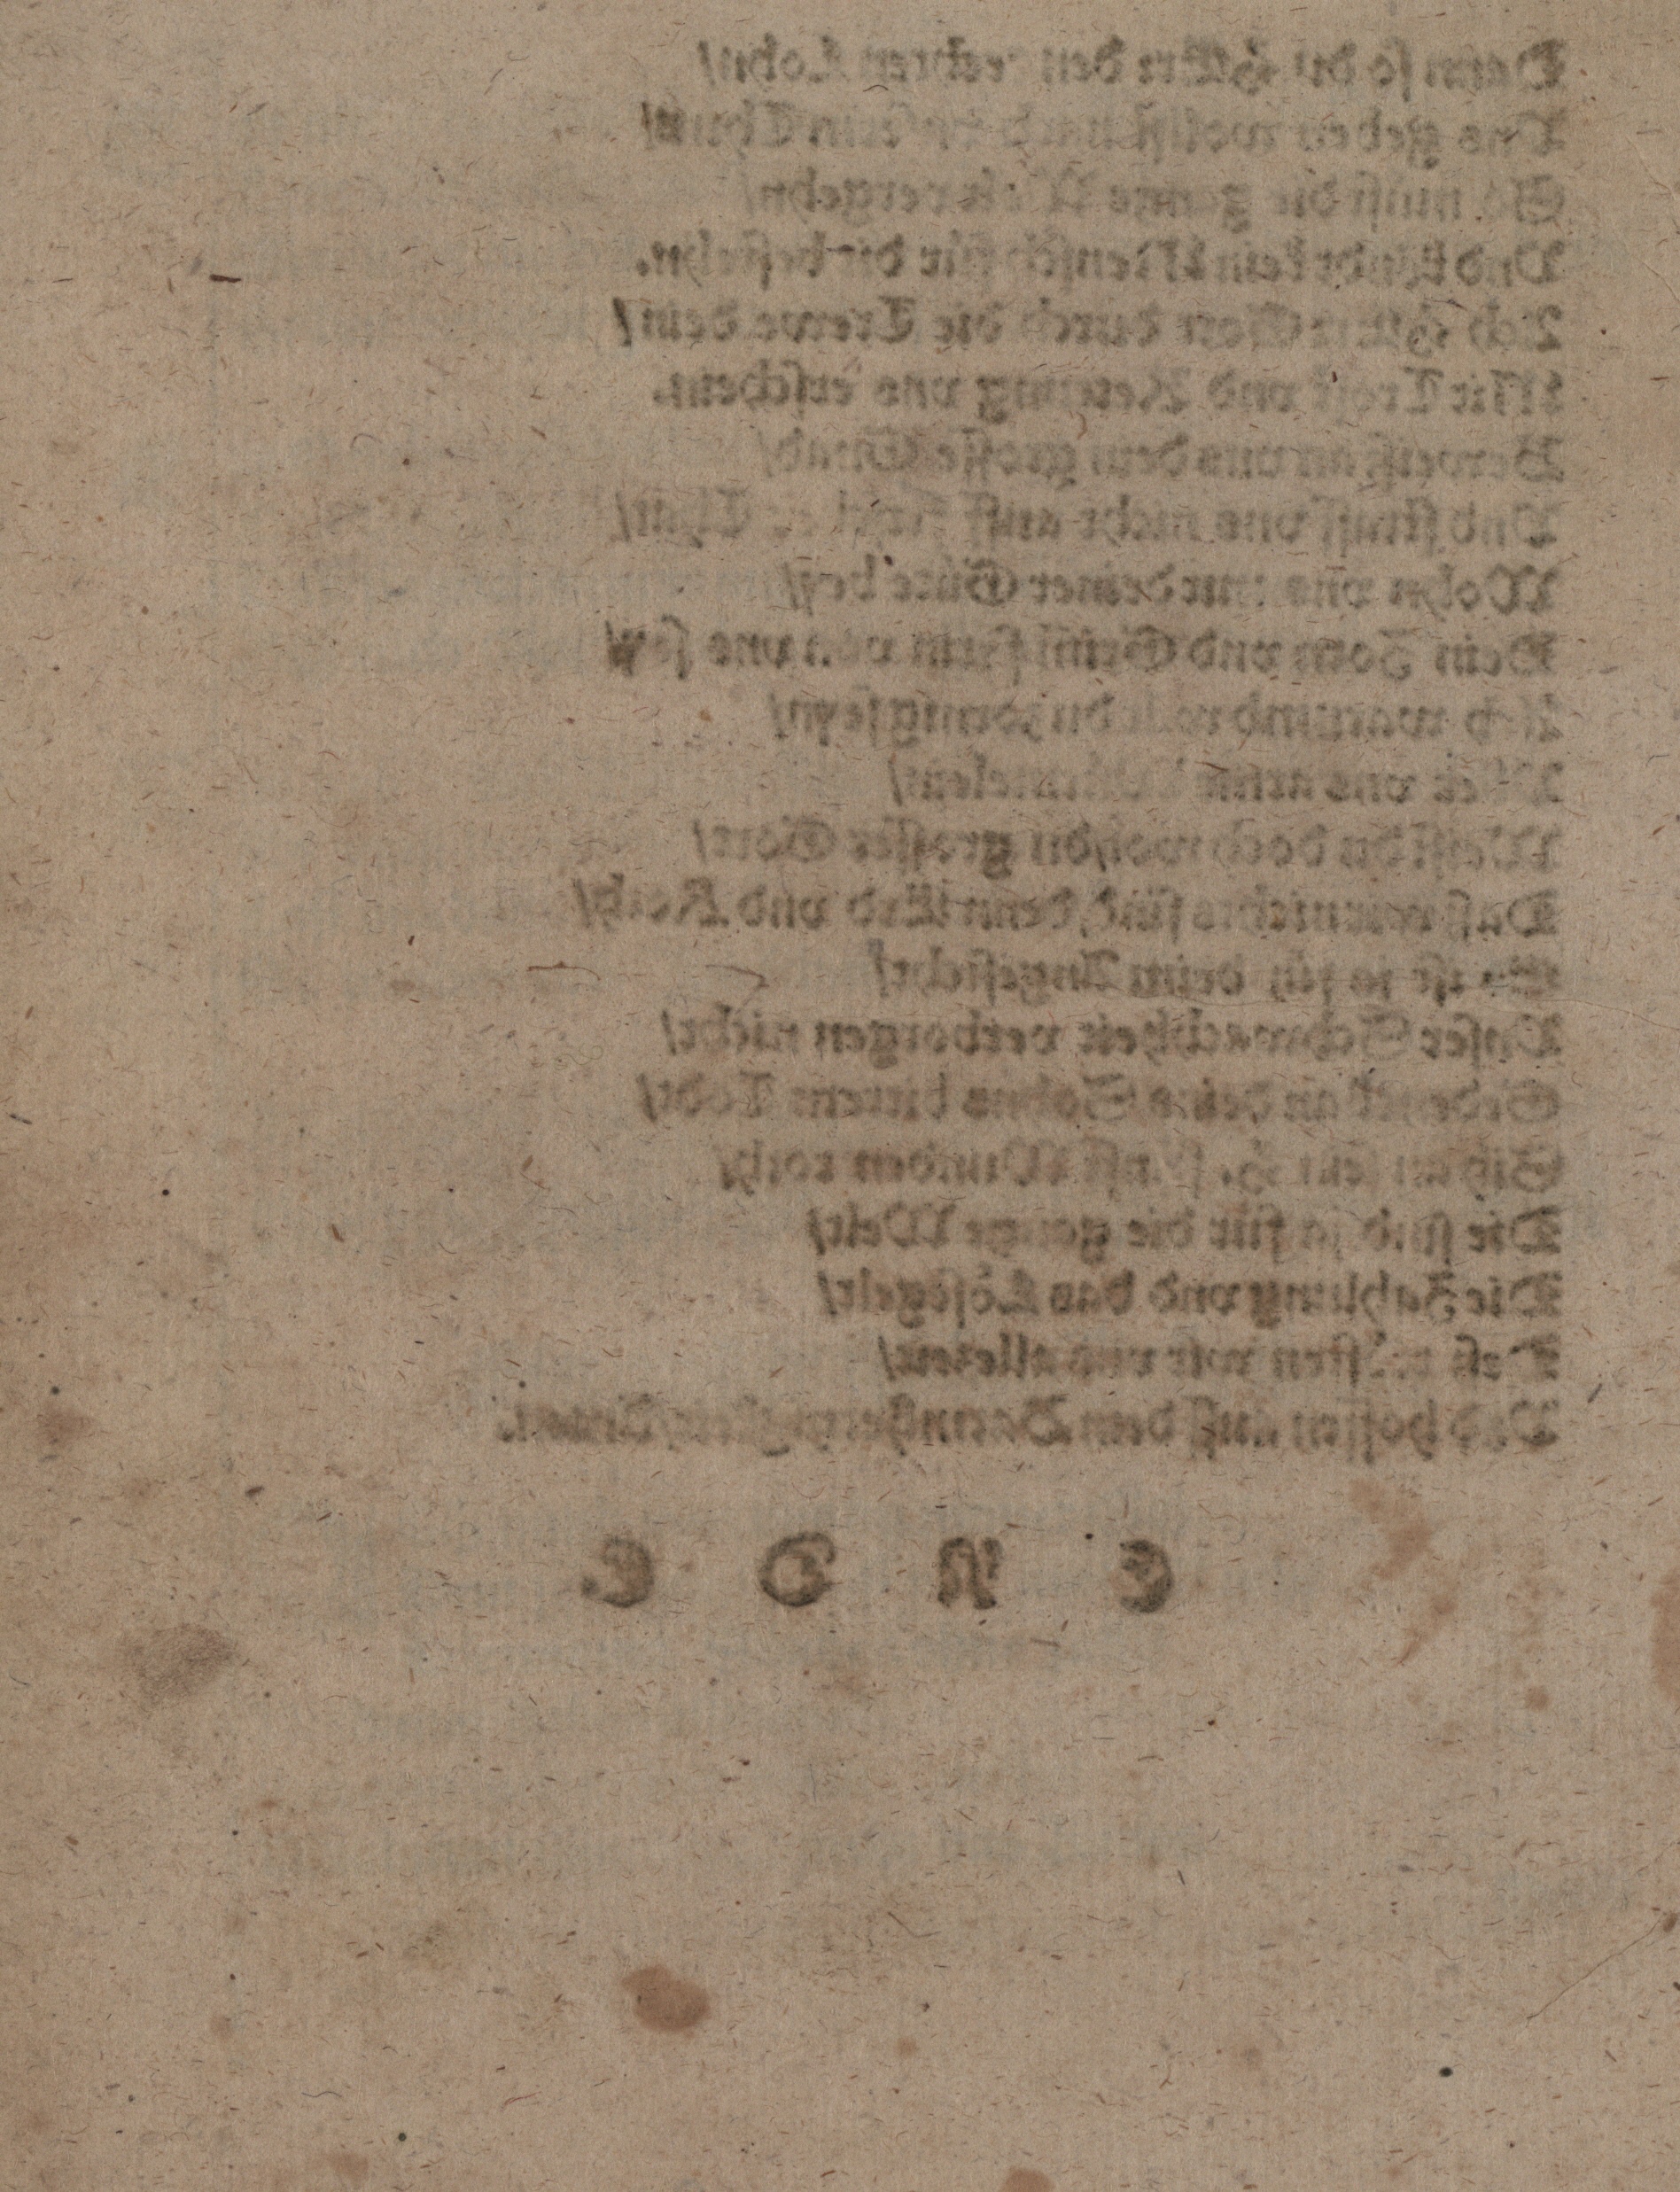 Denn so du HErr den rechten Lohn/
Vns geben wolst nach vnserm Thun/
So must die gantze Welt vergehn/
Vnd köndt kein Mensch für dir bestehn.
Ach HErr Gott durch die Trewe dein/
Mit Trost vnd Rettung vns erschein.
Beweiß an vns dein grosse Gnad/
Vnd straff vns nicht auff frischer That/
Wohn vns mit deiner Güte bey/
Dein Zorn vnd Grimm fern von vns sey/
Ach warumb wiltu zornig seyn/
vns arme
Weistu doch wol du grosser Gott/
Daß wir nichts sind, denn Erd vnd Koth/
Es ist ja für deim Angesicht/
Vnser Schwachheit verborgen nicht/
Gedenck an deins Sohns bittern Todt/
Sih an sein H. fünff Wunden roth/
Die sind ja für die gantze Welt/
Die Zahlung vnd das Lösegelt/
Deß trösten wir vns allezeit/
Vnd hoffen auff dein Barmhertzigkeit/ Amen.
E N D E.